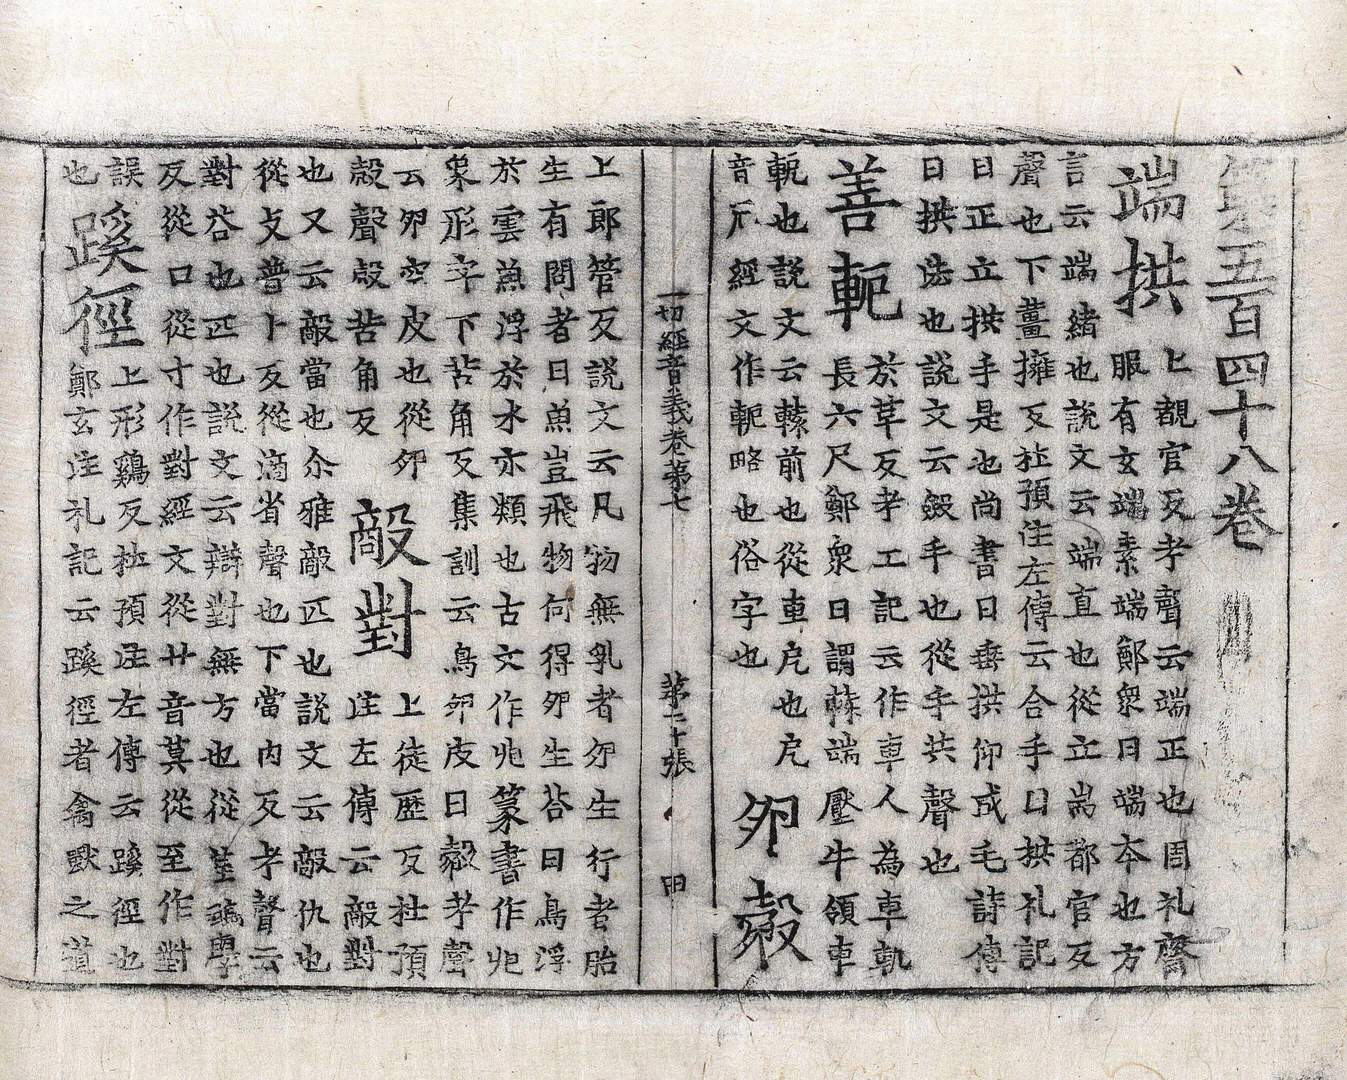 第五百四十八卷
端拱
上覩官反考聲云端正也周礼齊
服有玄端素端鄭衆曰端夲也方
言云端緒也說文云端直也從立耑都官反
聲也下薑擁反杜預注左傳云合手曰拱礼記
曰正立拱手是也尚書曰垂拱仰成毛詩傳
曰拱法也說文云斂手也從手共聲也
善軛
於革反考工記云作車人為車軌
長六尺鄭衆曰謂轅端壓牛領車
軛也說文云轅前也從車戹也戹
音厄經文作軛略也俗字也
卵㲉
一切經音義卷第七 第二十張
上郎管反說文云凡物無乳者卵生行者胎
生有問者曰魚豈飛物何得卵生荅曰鳥浮
於雲魚浮於水亦類也古文作篆書作
象形字下苦角反集訓云鳥卵皮曰㲉考聲
云卵空皮也從卵
殻聲殻苦角反
敵對
上徒歴反杜預
注左傳云敵對
也又云敵當也尒雅敵匹也說文云敵仇也
從攴普卜反從滴省聲也下當內反考聲云
對荅也匹也說文云辯對無方也從丵學
反從口從寸作對經文從廾音莫從至作對
誤
也
蹊徑
上形鷄反杜預注左傳云蹊徑也
鄭玄注礼記云蹊徑者禽獸之道